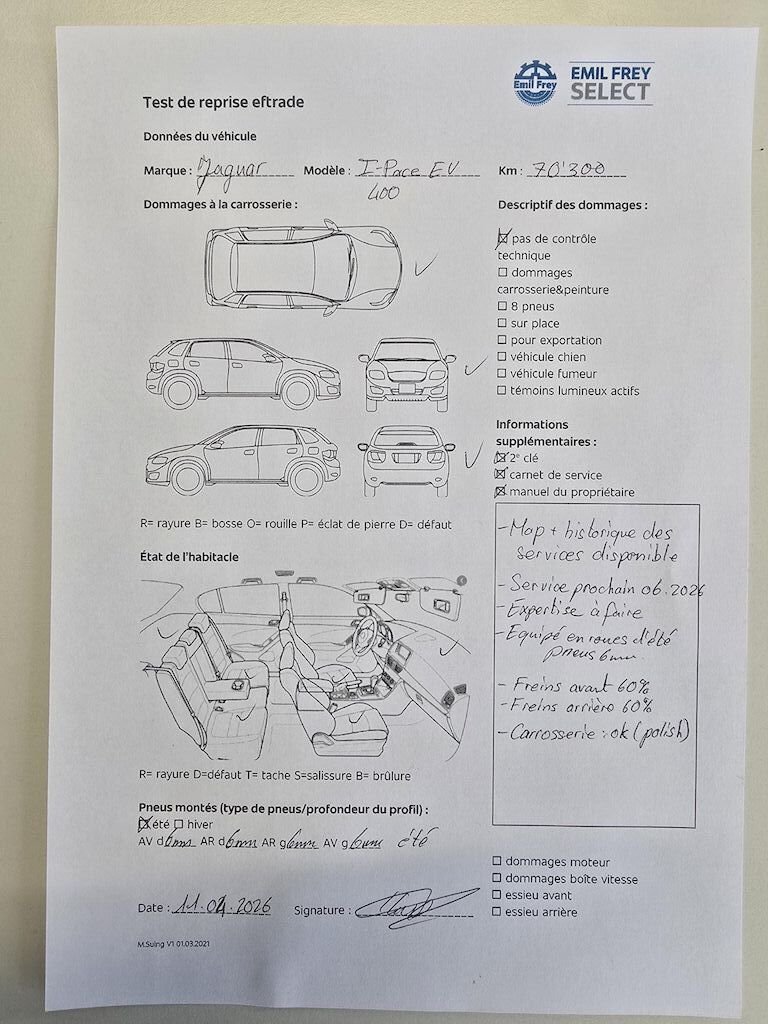 Emil Frey
EMIL FREY
SELECT
Test de reprise eftrade
Données du véhicule
Marque : Jaguar Modèle : I-Pace EV Km : 70'300
400
Dommages à la carrosserie :
R= rayure B= bosse O= rouille P= éclat de pierre D= défaut
État de l'habitacle
R= rayure D=défaut T= tache S=salissure B= brûlure
Pneus montés (type de pneus/profondeur du profil) :
☒ été ☐ hiver
AV d 6mm AR d 6mm AR g 6mm AV g 6mm été
Date : 11.04.2026 Signature :
M.Suing V1 01.03.2021
Descriptif des dommages :
☒ pas de contrôle
technique
☐ dommages
carrosserie&peinture
☐ 8 pneus
☐ sur place
☐ pour exportation
☐ véhicule chien
☐ véhicule fumeur
☐ témoins lumineux actifs
Informations
supplémentaires :
☒ 2e clé
☒ carnet de service
☒ manuel du propriétaire
- Map + historique des
services disponible
- Service prochain 06.2026
- Expertise à faire
- Equipé en roues d'été
pneus 6mm
- Freins avant 60%
- Freins arrière 60%
- Carrosserie : ok (polish)
☐ dommages moteur
☐ dommages boîte vitesse
☐ essieu avant
☐ essieu arrière